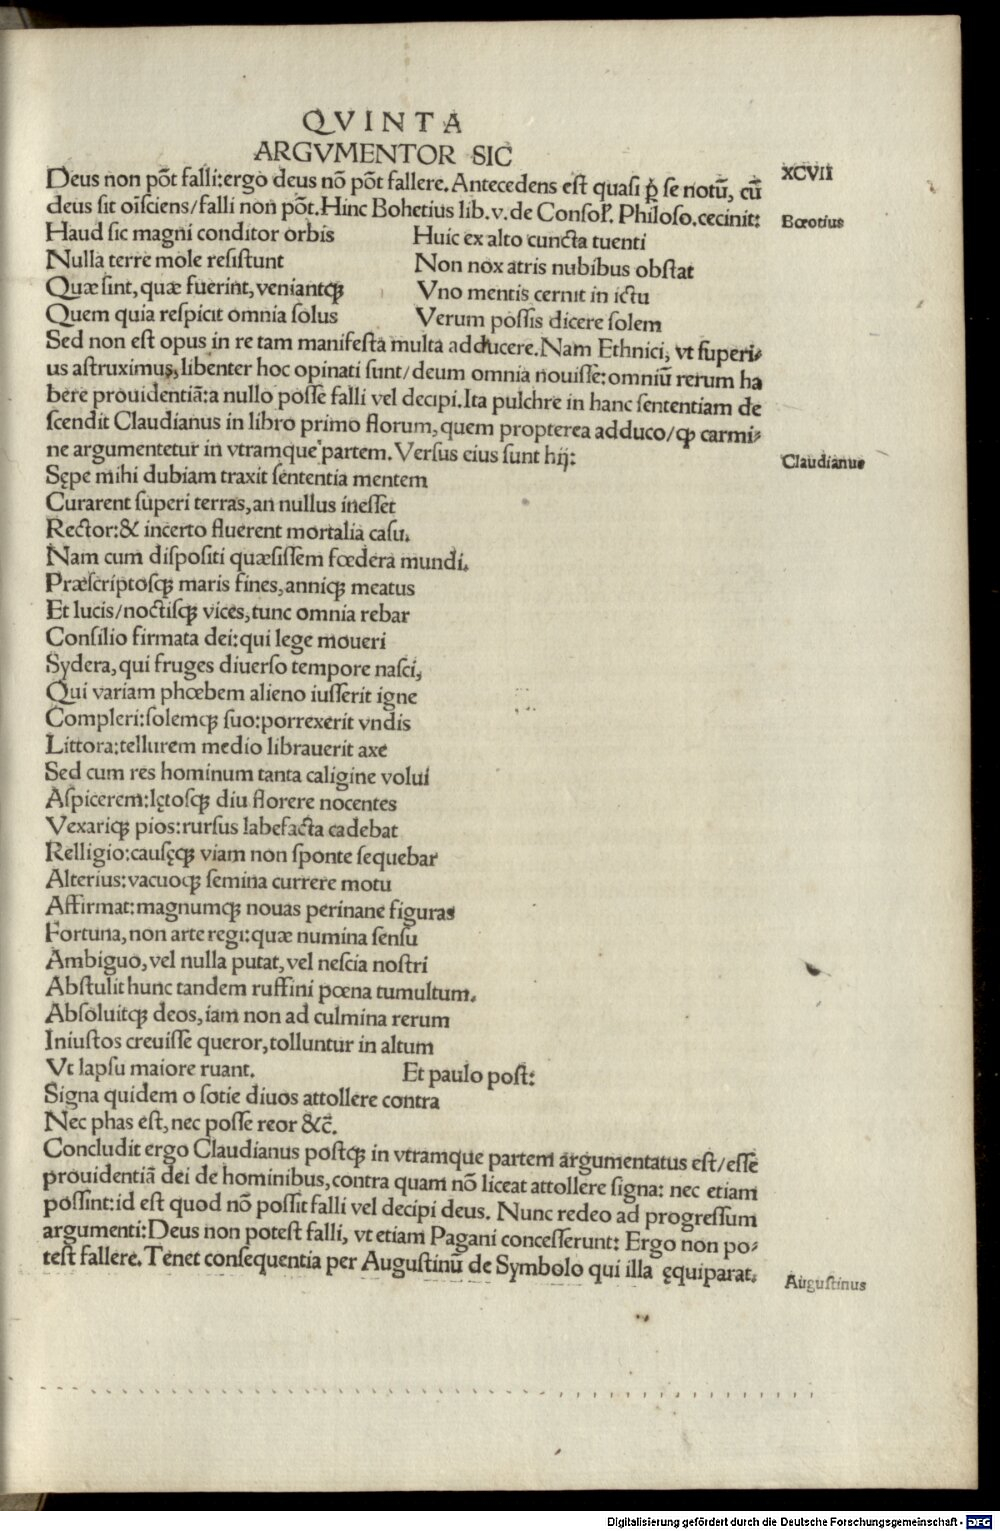 QVINTA
ARGVMENTOR SIC
XCVII
Deus non põt falli:ergo deus nõ põt fallere. Antecedens est quasi ꝑ se notũ, cũ
deus sit oĩsciens/falli non põt. Hinc Bohetius lib.v.de Consol'. Philoso.cecinit:
Bœotius
Haud sic magni conditor orbis
Nulla terre mole resistunt
Quæ sint, quæ fuerint, veniantqꝫ
Quem quia respicit omnia solus
Huic ex alto cuncta tuenti
Non nox atris nubibus obstat
Vno mentis cernit in ictu
Verum possis dicere solem
Sed non est opus in re tam manifesta multa adducere. Nam Ethnici, vt superi⸗
us astruximus, libenter hoc opinati sunt/deum omnia nouisse: omniũ rerum ha
bere prouidentiã:a nullo posse falli vel decipi. Ita pulchre in hanc sententiam de
scendit Claudianus in libro primo florum, quem propterea adduco/qꝫ carmi⸗
ne argumentetur in vtramque partem. Versus eius sunt hij:
Claudianus
Sępe mihi dubiam traxit sententia mentem
Curarent superi terras, an nullus inesset
Rector:& incerto fluerent mortalia casu.
Nam cum dispositi quæsissem fœdera mundi.
Præscriptosqꝫ maris fines, anniqꝫ meatus
Et lucis/noctisqꝫ vices, tunc omnia rebar
Consilio firmata dei: qui lege moueri
Sydera, qui fruges diuerso tempore nasci,
Qui variam phœbem alieno iusserit igne
Compleri:solemqꝫ suo:porrexerit vndis
Littora:tellurem medio librauerit axe
Sed cum res hominum tanta caligine volui
Aspicerem:lętosqꝫ diu florere nocentes
Vexariqꝫ pios:rursus labefacta cadebat
Relligio:causęqꝫ viam non sponte sequebar
Alterius:vacuoqꝫ semina currere motu
Affirmat:magnumqꝫ nouas perinane figuras
Fortuna, non arte regi:quæ numina sensu
Ambiguo, vel nulla putat, vel nescia nostri
Abstulit hunc tandem ruffini pœna tumultum.
Absoluitqꝫ deos, iam non ad culmina rerum
Iniustos creuisse queror, tolluntur in altum
Vt lapsu maiore ruant. Et paulo post:
Signa quidem o sotie diuos attollere contra
Nec phas est, nec posse reor &c̃.
Concludit ergo Claudianus postqꝫ in vtramque partem argumentatus est/esse
prouidentiã dei de hominibus, contra quam nõ liceat attollere signa: nec etiam
possint:id est quod nõ possit falli vel decipi deus. Nunc redeo ad progressum
argumenti:Deus non potest falli, vt etiam Pagani concesserunt: Ergo non po⸗
test fallere. Tenet consequentia per Augustinũ de Symbolo qui illa ęquiparat.
Augustinus
Digitalisierung gefördert durch die Deutsche Forschungsgemeinschaft - DFG